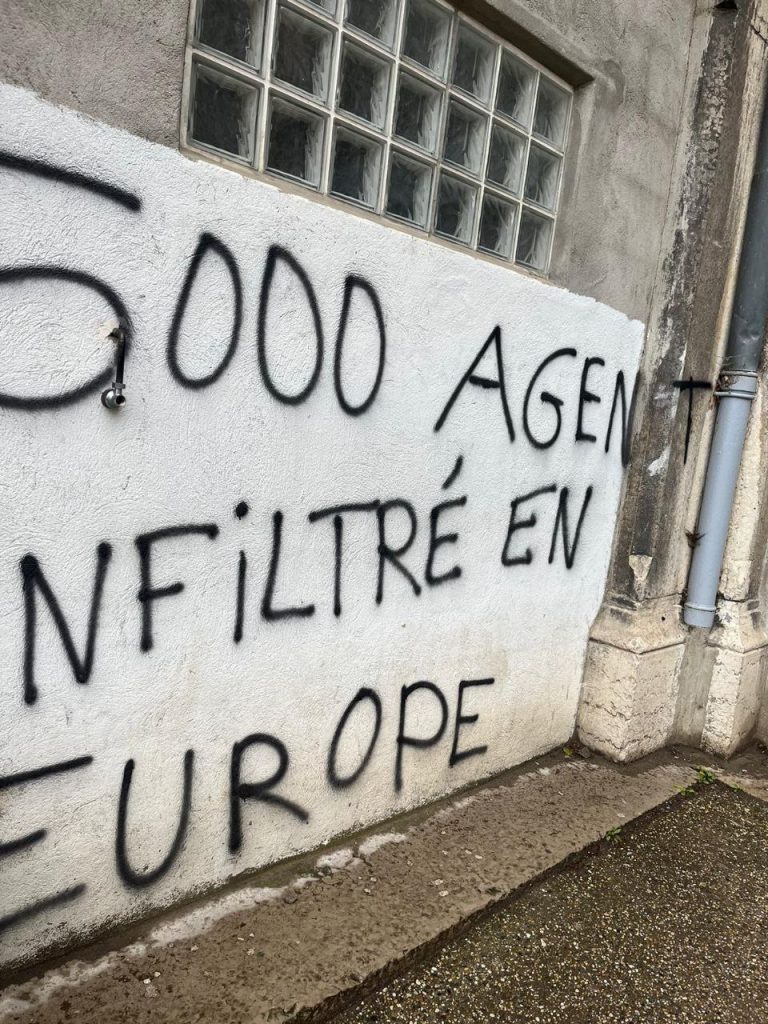 5000 AGENT
NFiLTRÉ EN
EUROPE